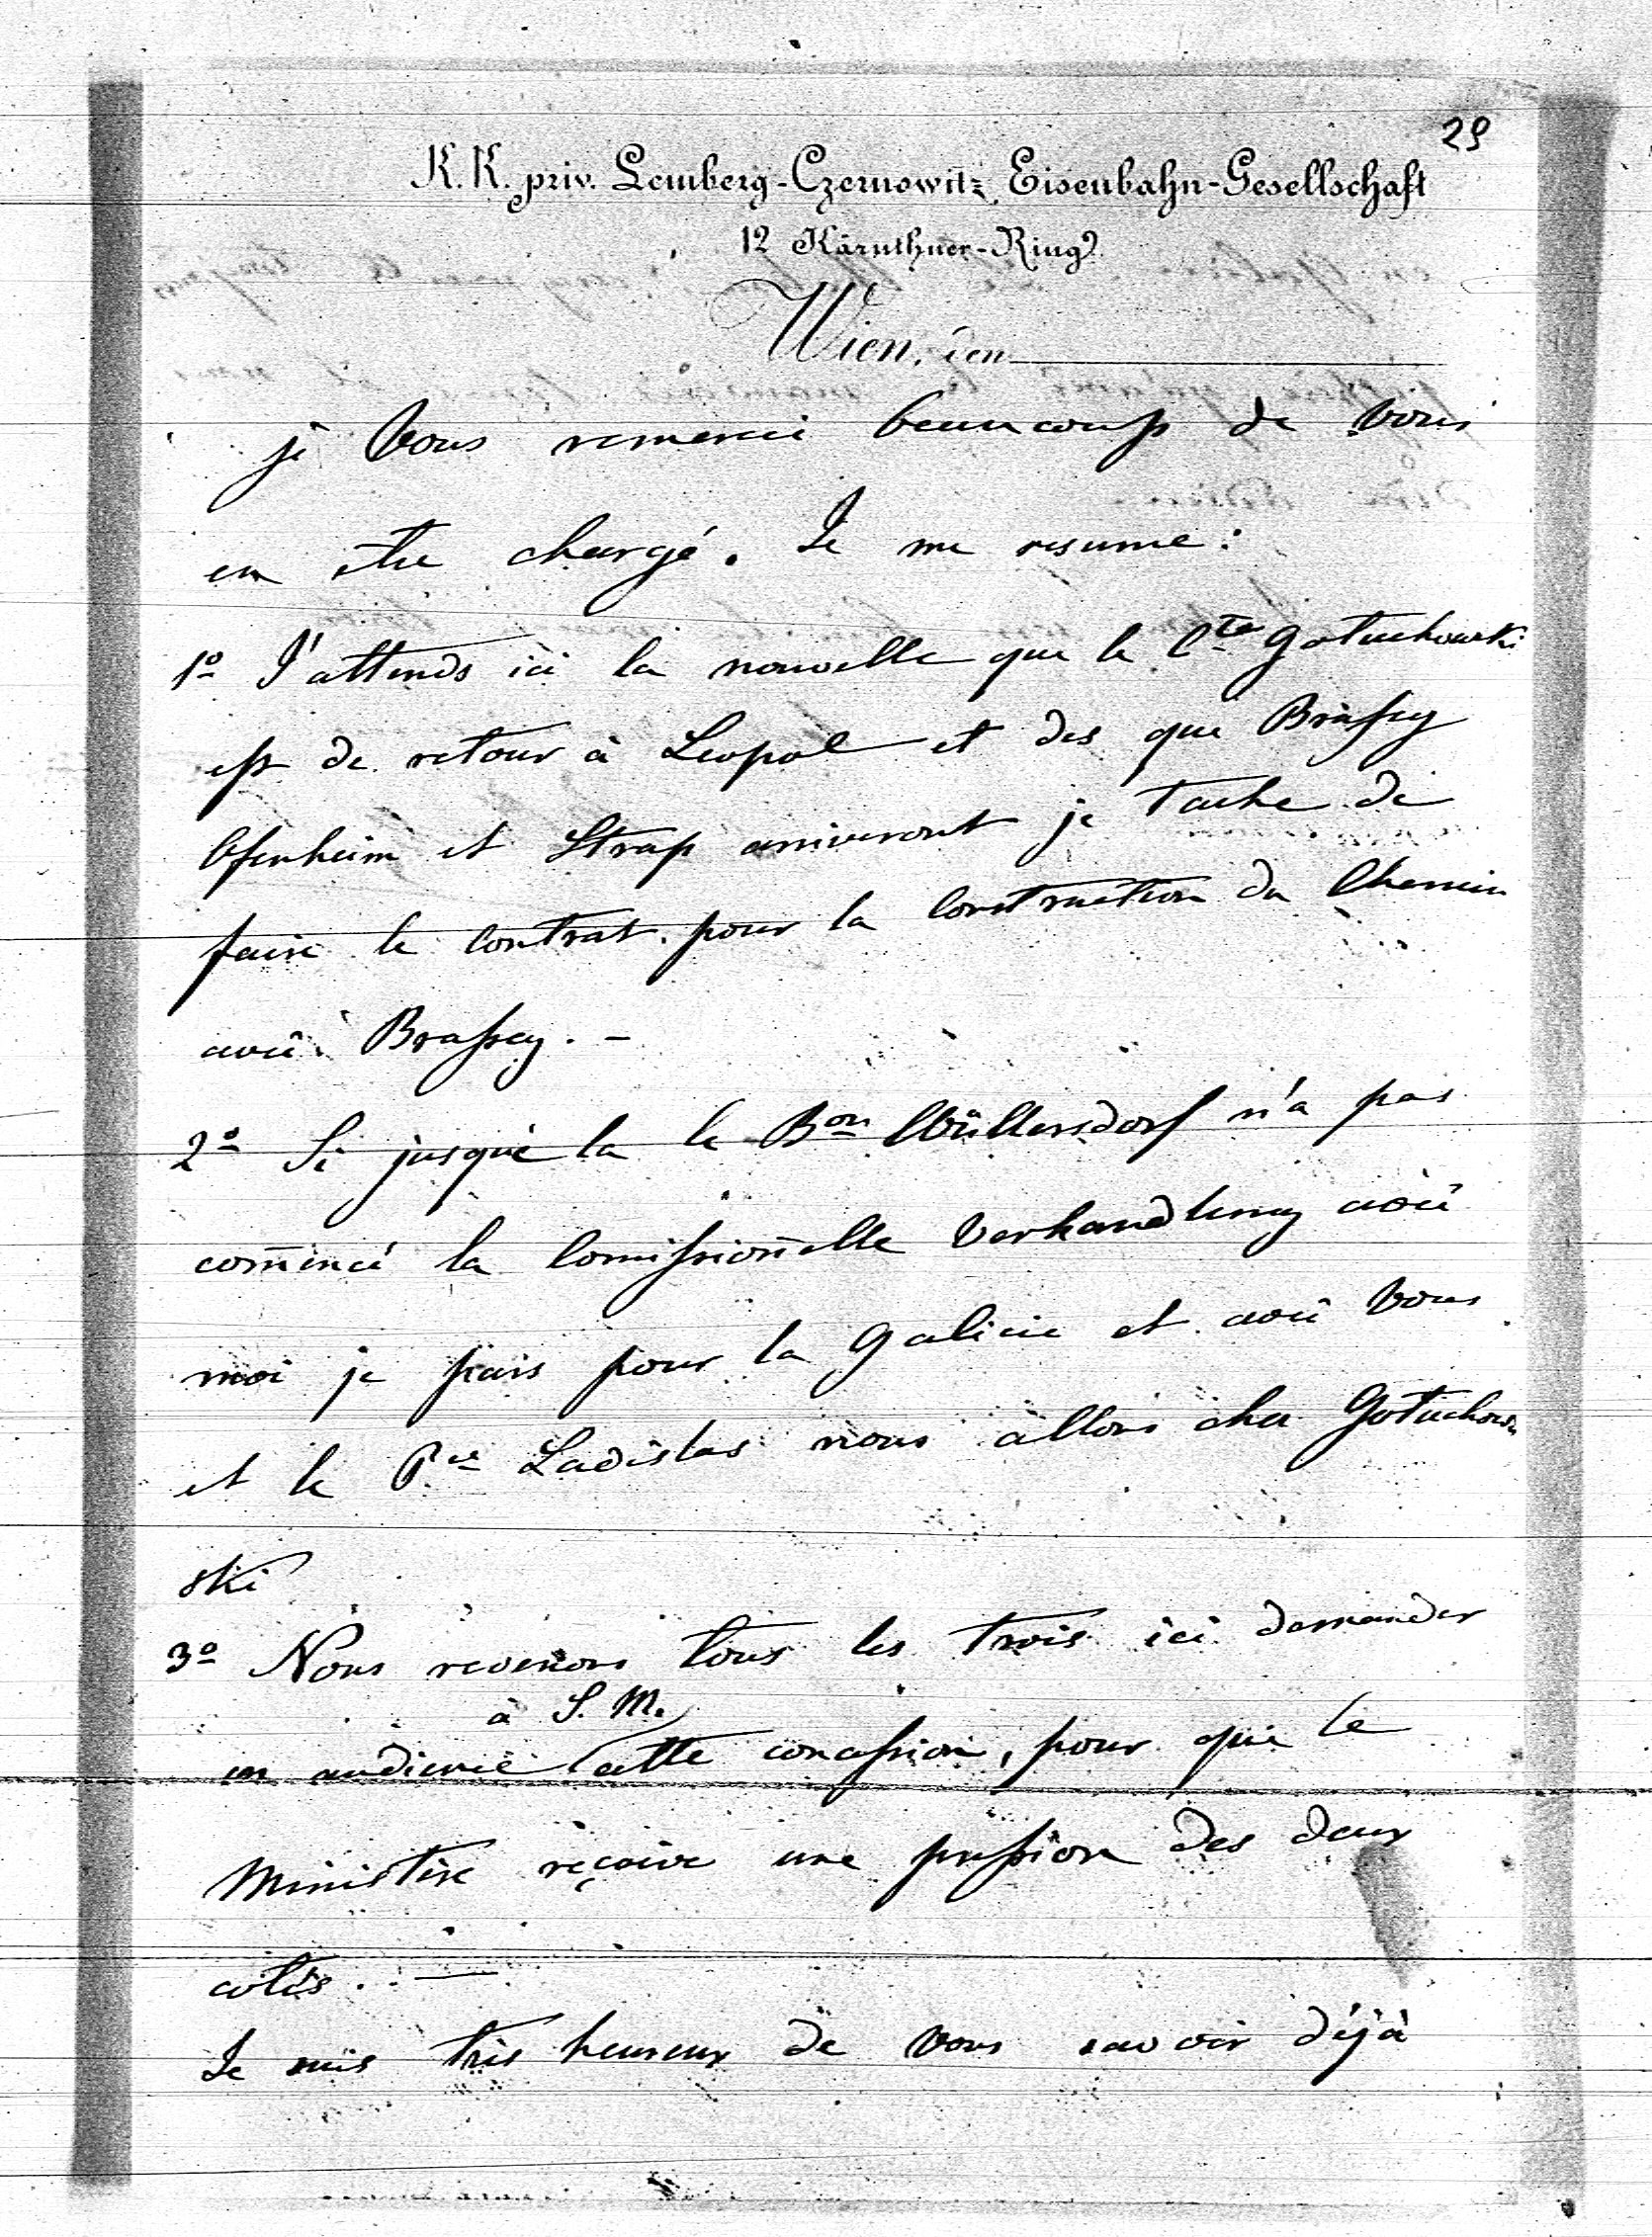 29
K. K. priv. Lemberg-Czernowitz Eisenbahn-Gesellschaft
12 Kärnthner-Ring
Wien, den
je Vous remercie beaucoup de Vous
en être chargé. Je me resume:
1º J'attends ici la nouvelle que le Cte Gołuchowski
est de retour à Leopol et des que Brassey
Ofenheim et Strap arriveront je tache de
faire le Contrat pour la Construction du Chemin
avec Brassey. -
2º Si jusque la le Bon Wüllersdorf n'a pas
com̄encé la Comissioñelle Verhandlung avec
moi je pars pour la Galicie et avec Vous
et le Pce Ladislas nous allons chez Gołuchow
ski
3º Nous revenons tous les trois ici demander
à S. M.
en audience cette concession, pour que le
Ministère reçoive une pression des deux
cotés. —
Je suis très heureux de Vous savoir déjà